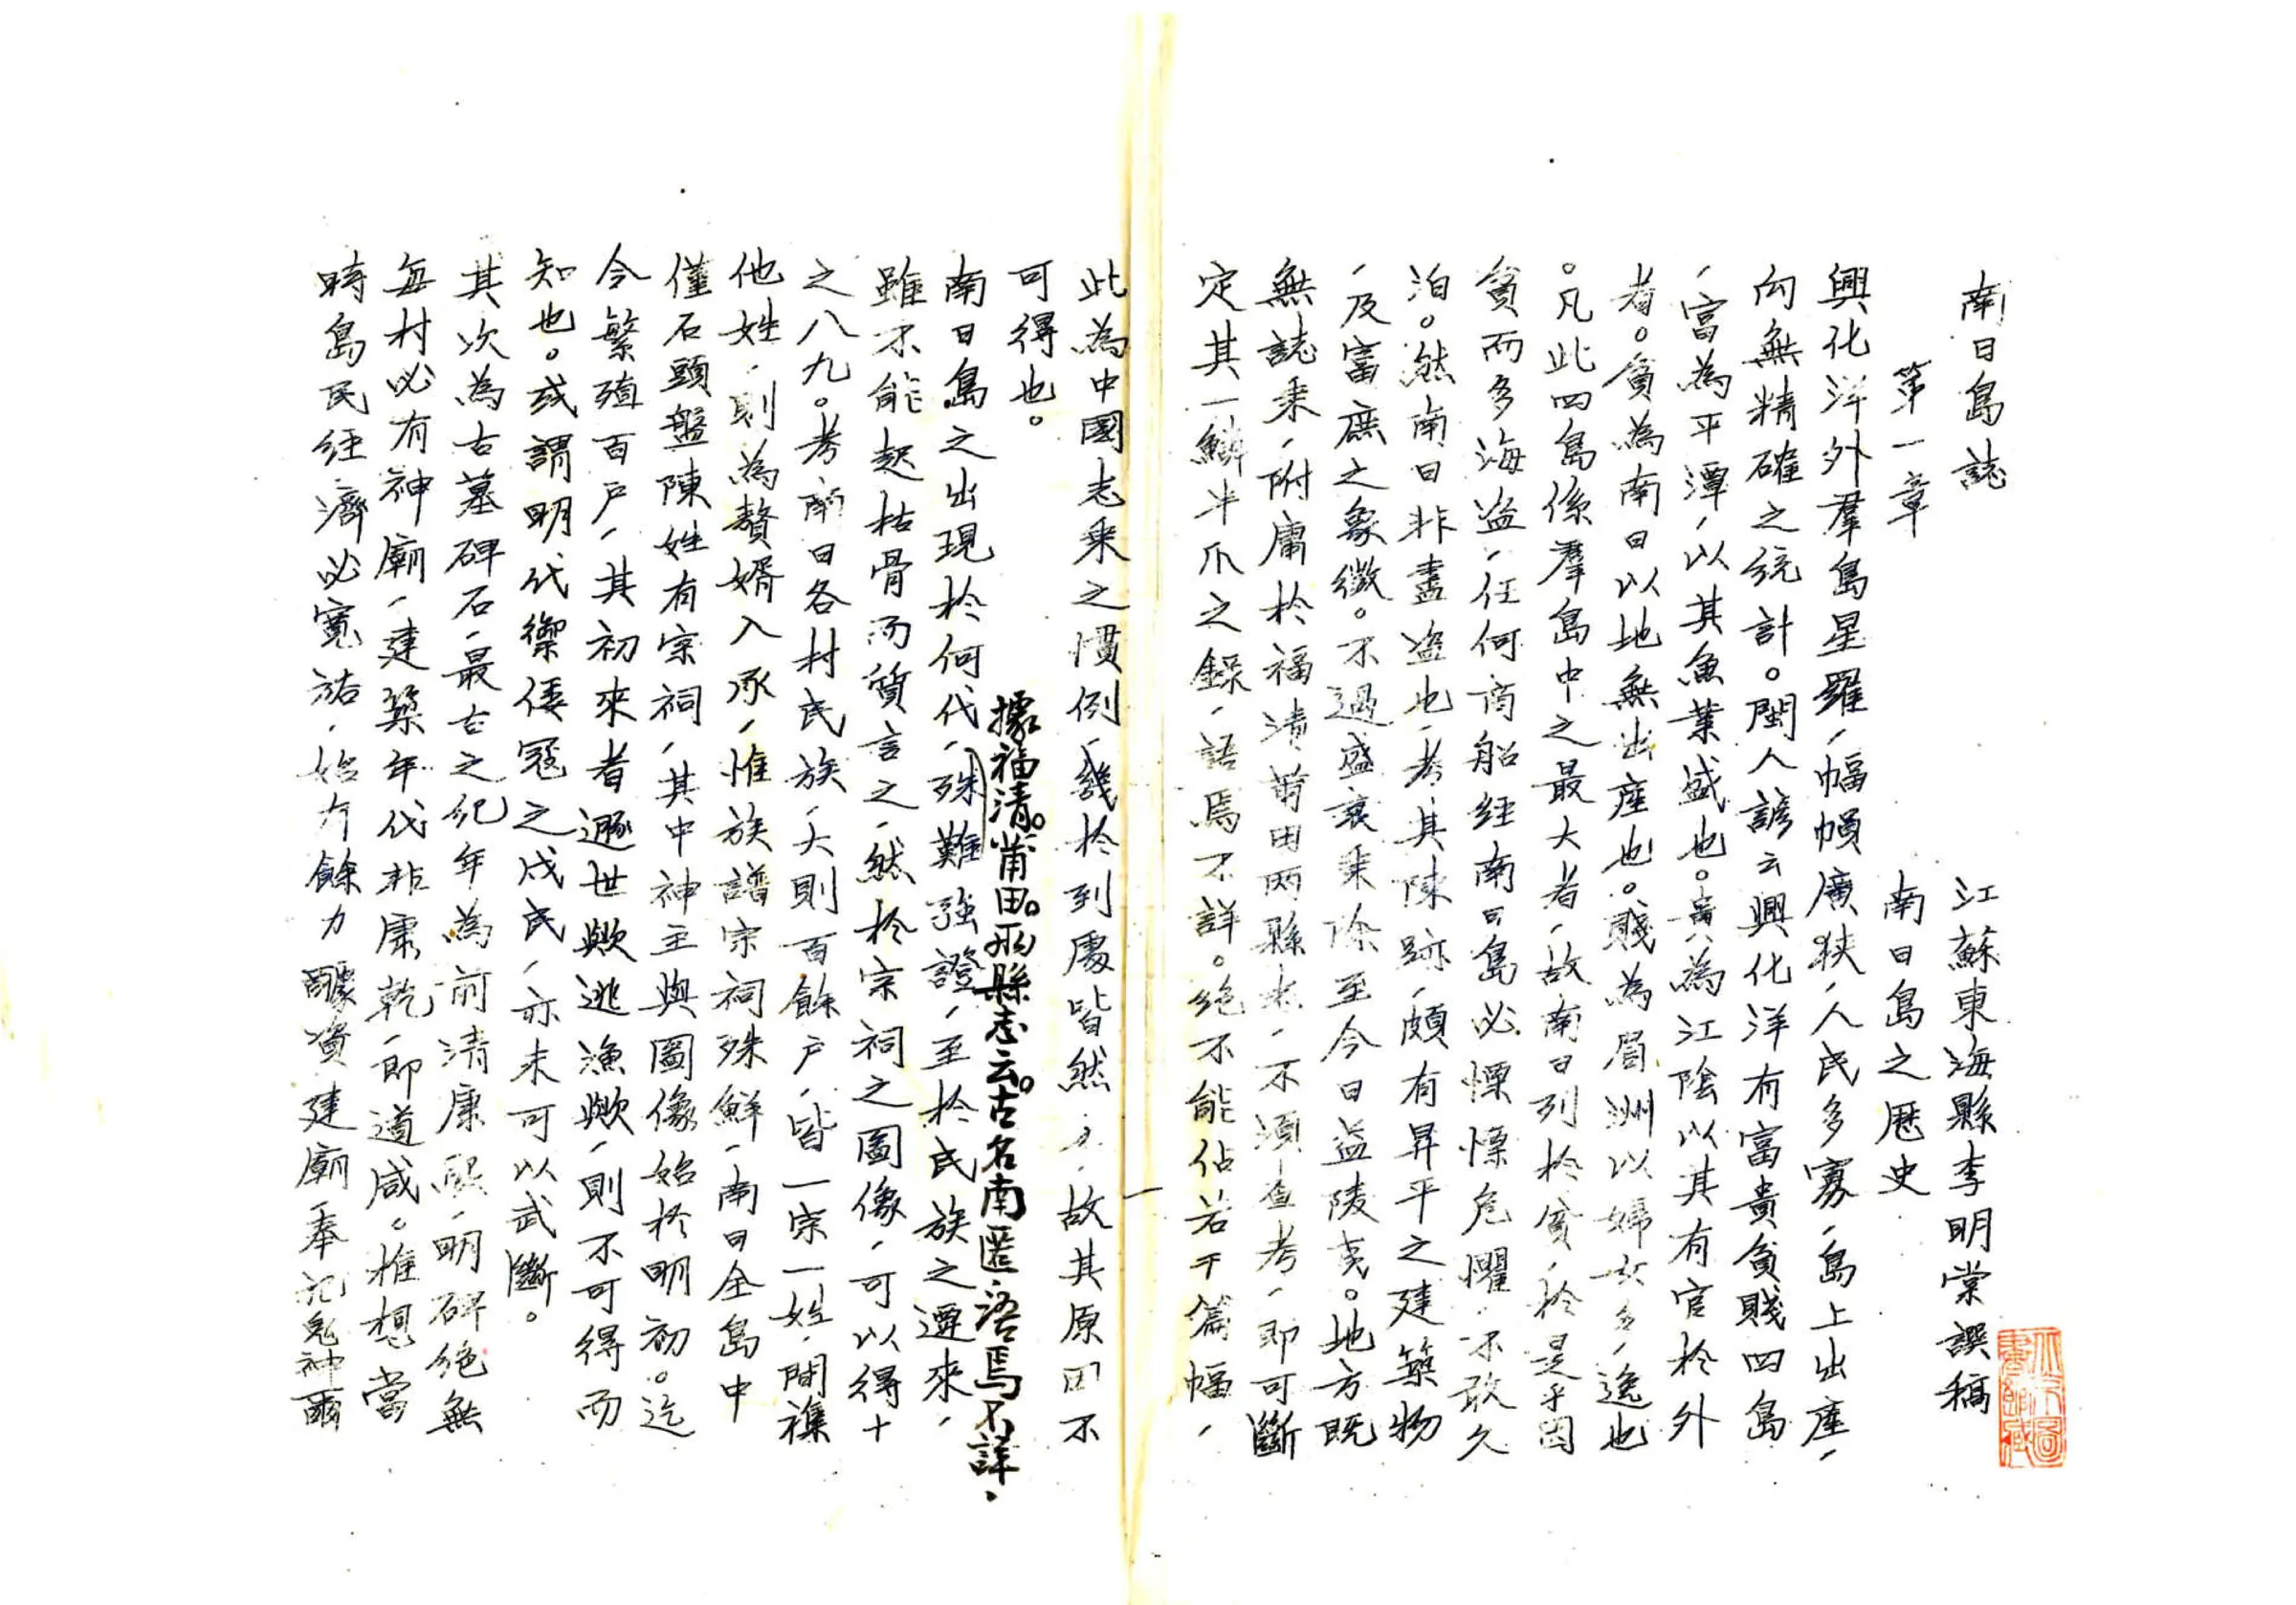 南日島誌
江蘇東海縣李明棠譔稿
第一章
南日島之歷史
興化洋外羣島星羅，幅幀廣狹，人民多寡，島上出產，
向無精確之統計。閩人諺云興化洋有富貴貧賤四島
，富為平潭，以其魚業盛也。貴為江陰以其有官於外
者。貧為南日以地無出產也。賤為眉洲以婦女多逸也
。凡此四島係羣島中之最大者，故南日列於貧，於是乎因
貧而多海盜，任何商船經南日島必慄慄危懼，不敢久
泊。然南日非盡盜也，考其陳跡，頗有昇平之建築物
，及富庶之象徵。不過盛衰乘除至今日益陵夷。地方既
無誌乘，附庸於福清莆田兩縣末，不須查考，即可斷
定其一鱗半爪之錄，語焉不詳。絕不能佔若干篇幅，
此為中國志乘之慣例，幾於到處皆然，故其原因不
可得也。
據福清。莆田。兩縣志云。古名南匿，語焉不詳，
南日島之出現於何代，殊難強證，至於民族之遷來，
雖不能起枯骨而質言之，然於宗祠之圖像，可以得十
之八九。考南日各村民族，大則百餘戶，皆一宗一姓，間襍
他姓，則為贅婿入承，惟族譜宗祠殊鮮，南日全島中
僅石頭盤陳姓有宗祠，其中神主與圖像始於明初。迄
今繁殖百戶，其初來者遯世歟逃漁歟，則不可得而
知也。或謂明代禦倭寇之戍民，亦未可以武斷。
其次為古墓碑石，最古之紀年為前清康熙，明碑絕無
每村必有神廟，建築年代非康乾，即道咸。推想當
時島民經濟必寬裕，始有餘力醵資建廟奉祀鬼神爾